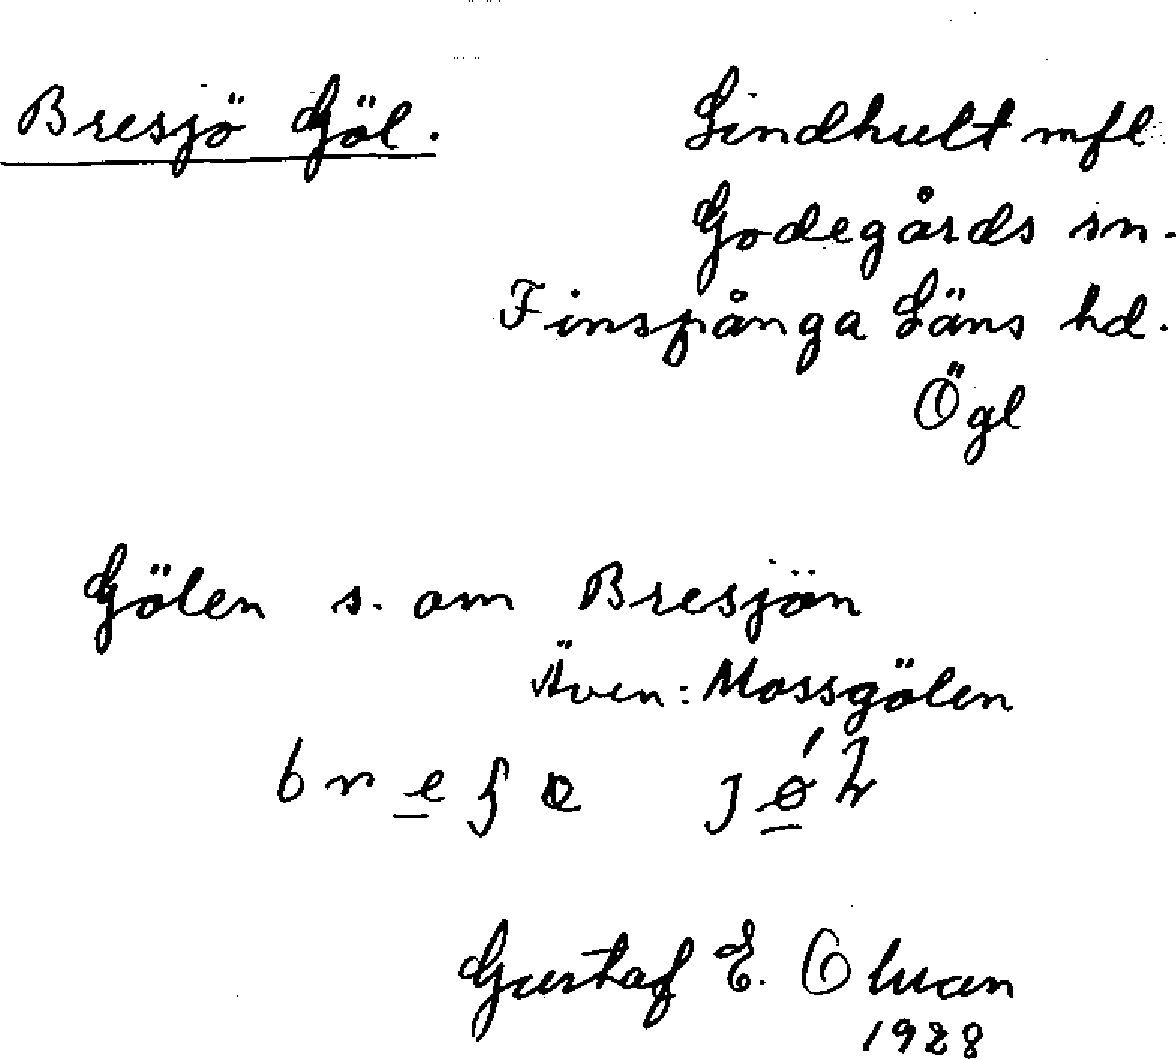 Bresjö Göl. Lindhult mfl.
Godegårds sn.
Finspånga Läns hd.
Ögl
Gölen s. om Bresjön
Även: Mossgölen
Gustaf E. Olson
1928